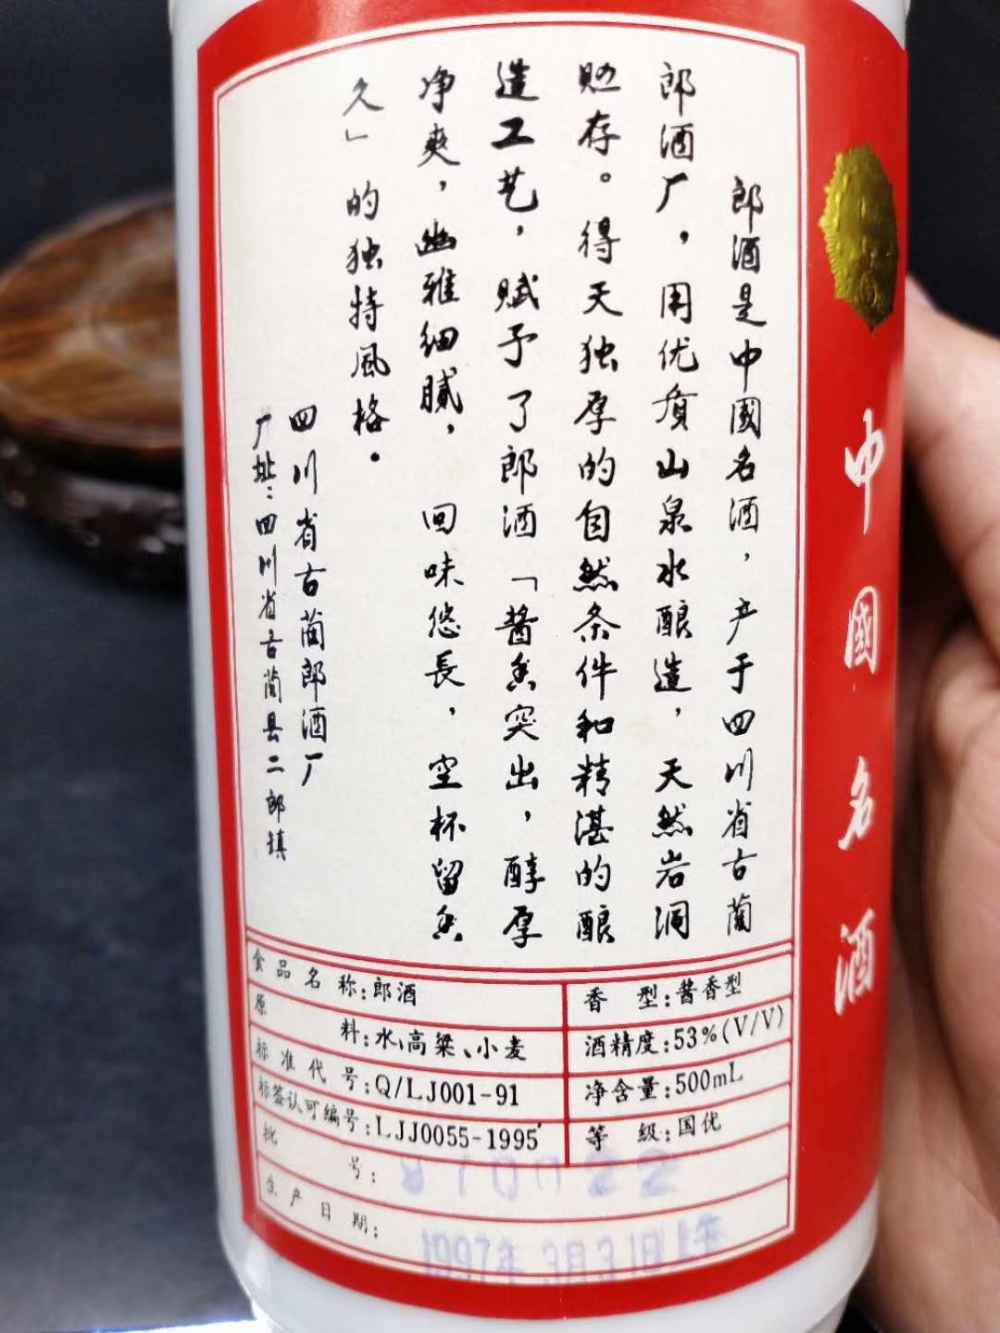 郎酒是中國名酒，产于四川省古蔺
郎酒厂，用优质山泉水酿造，天然岩洞
贮存。得天独厚的自然条件和精湛的酿
造工艺，赋予了郎酒「酱香突出，醇厚
净爽，幽雅细腻，回味悠長，空杯留香
久」的独特風格。
四川省古蔺郎酒厂
厂址：四川省古蔺县二郎镇
中國名酒
食品名称：郎酒
香型：酱香型
原料：水、高粱、小麦
酒精度：53%(V/V)
标准代号：Q/LJ001-91
净含量：500mL
标签认可编号：LJJ0055-1995
等级：国优
批号：
生产日期：1997年3月31日